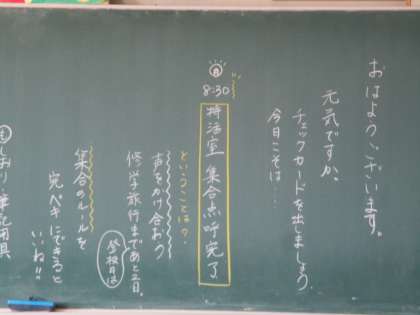 おはようございます。
元気ですか。
チェックカードを出しましょう。
今日こそは……
8:30
特活室 集合点呼完了
ということは?
声をかけ合おう
修学旅行まであと2日。
登校日は
集合のルールを
完ペキにできると
いいね!!
しおり・筆記用具